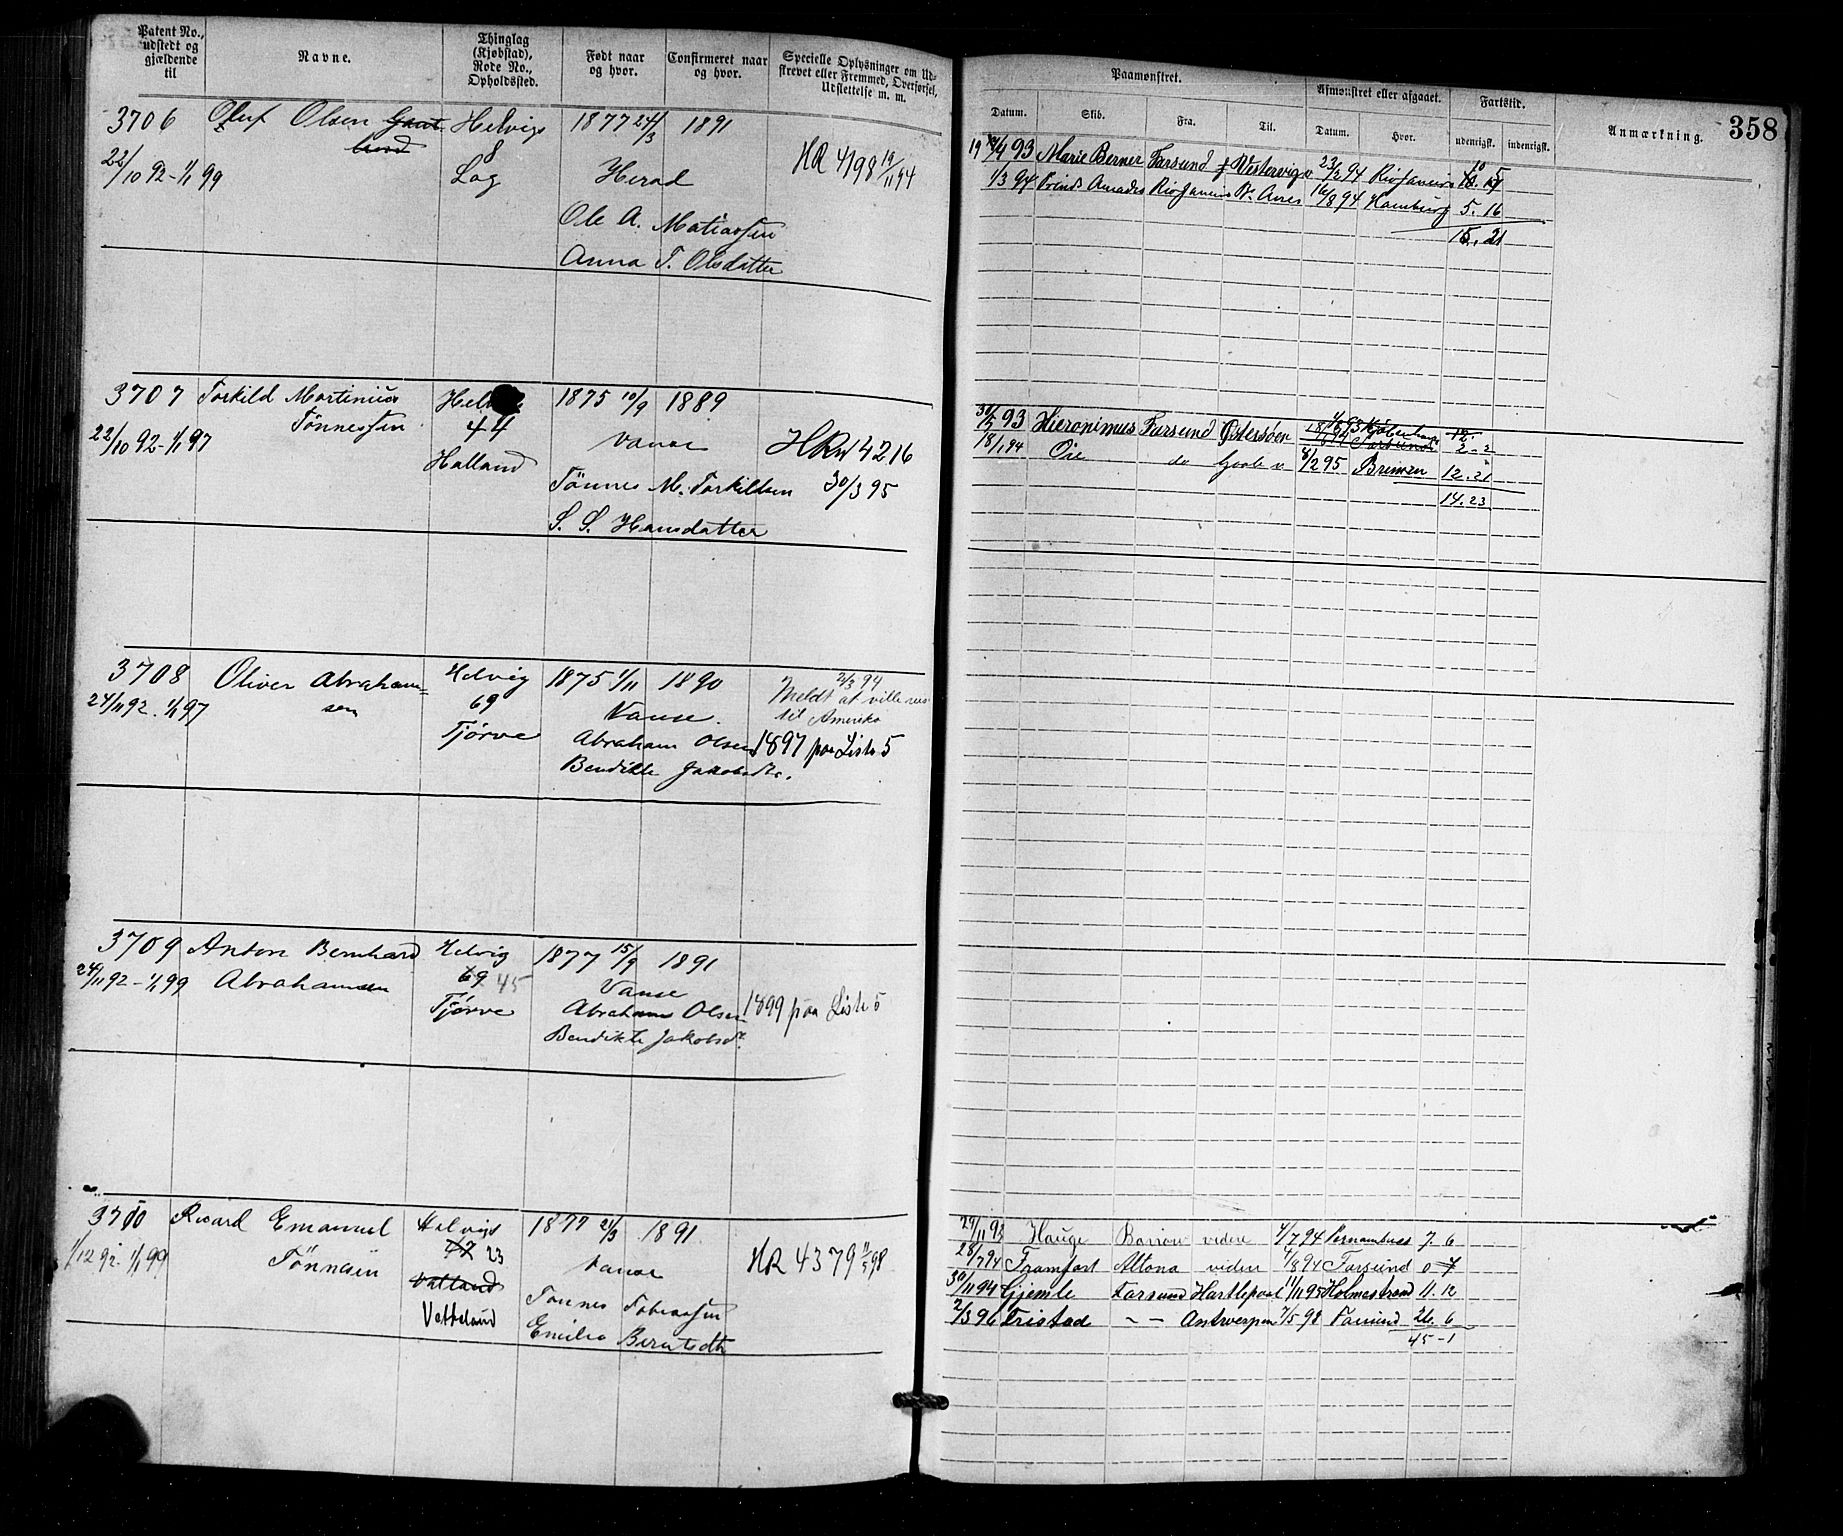 Patent No., udstedt og gjældende til
Navne.
Thinglag (Kjøbstad), Rode No., Opholdssted.
Født naar og hvor.
Confirmeret naar og hvor.
Specielle Oplysninger om Udskrevet eller Fremmed, Overførsel, Udslettelse m. m.
Paamønstret.
Afmønstret eller afgaaet.
Fartstid.
Anmærkning.
358
Datum.
Skib.
Fra.
Til.
Datum.
Hvor.
udenrigst.
indenrigst.
3706 Oluf Olsen Helvigs 1877 24/3 1891
22/10 92-1/1 99
8
Log Herad
HR 4198 19/11 94
Ole A. Matiassen
Anna T. Olsdatter
93 Marie Berner Farsund Westervig 23/2 94 Rio Janeiro
1/3 94 Prinds Amadeo Rio Janeiro Bs Aires 16/8 94 Hamburg 5. 16
15. 21
3707 Torkild Martinius 1875 10/9 1889
Tønnessen 44
22/10 92-1/1 97 Vanse
Halland
HR 4216
Tønnes M. Torkildsen 30/3 95
S. S. Hansdatter
93 Hieronimus Farsund Østersøen
2-2
18/1 94 Øie do 8/2 95 Bremen 12. 21
14. 23
3708 Oliver Abrahamsen Helvig 1875 1/11 1890
24/11 92. 1/1 97
69
Tjørve
Vanse.
2/3 94
Meldt at ville reise
til Amerika
Abraham Olsen 1897 paa Liste 5
Bendikte Jakobsdtr.
3709 Anton Bernhard Helvig 1877 15/9 1891
24/11 92-1/1 99 Abrahamsen 69 45
Tjørve
Vanse
Abraham Olsen 1899 paa Liste 5
Bendikte Jakobsdtr.
3710 Ricard Emanuel Helvigs 1877 21/3 1891
1/12 92. 1/1 99 Tønnesen 47 23
Vatland
Vatteland
Vanse
HR 4379 11/5 98
Tønnes Tobiassen
Emilie Berntsdtr
29/11 93 Hauge Barrow videre 4/7 94 Pernambuco 7. 6
28/7 94 Framfart Altona videre 4/8 94 Farsund 0 7
30/11 94 Gjemle Farsund Hartlepool 11/11 95 Holmestrand 11. 12
2/3 96 Fristad - - Antwerpen 7/5 98 Farsund 26. 6
45-1